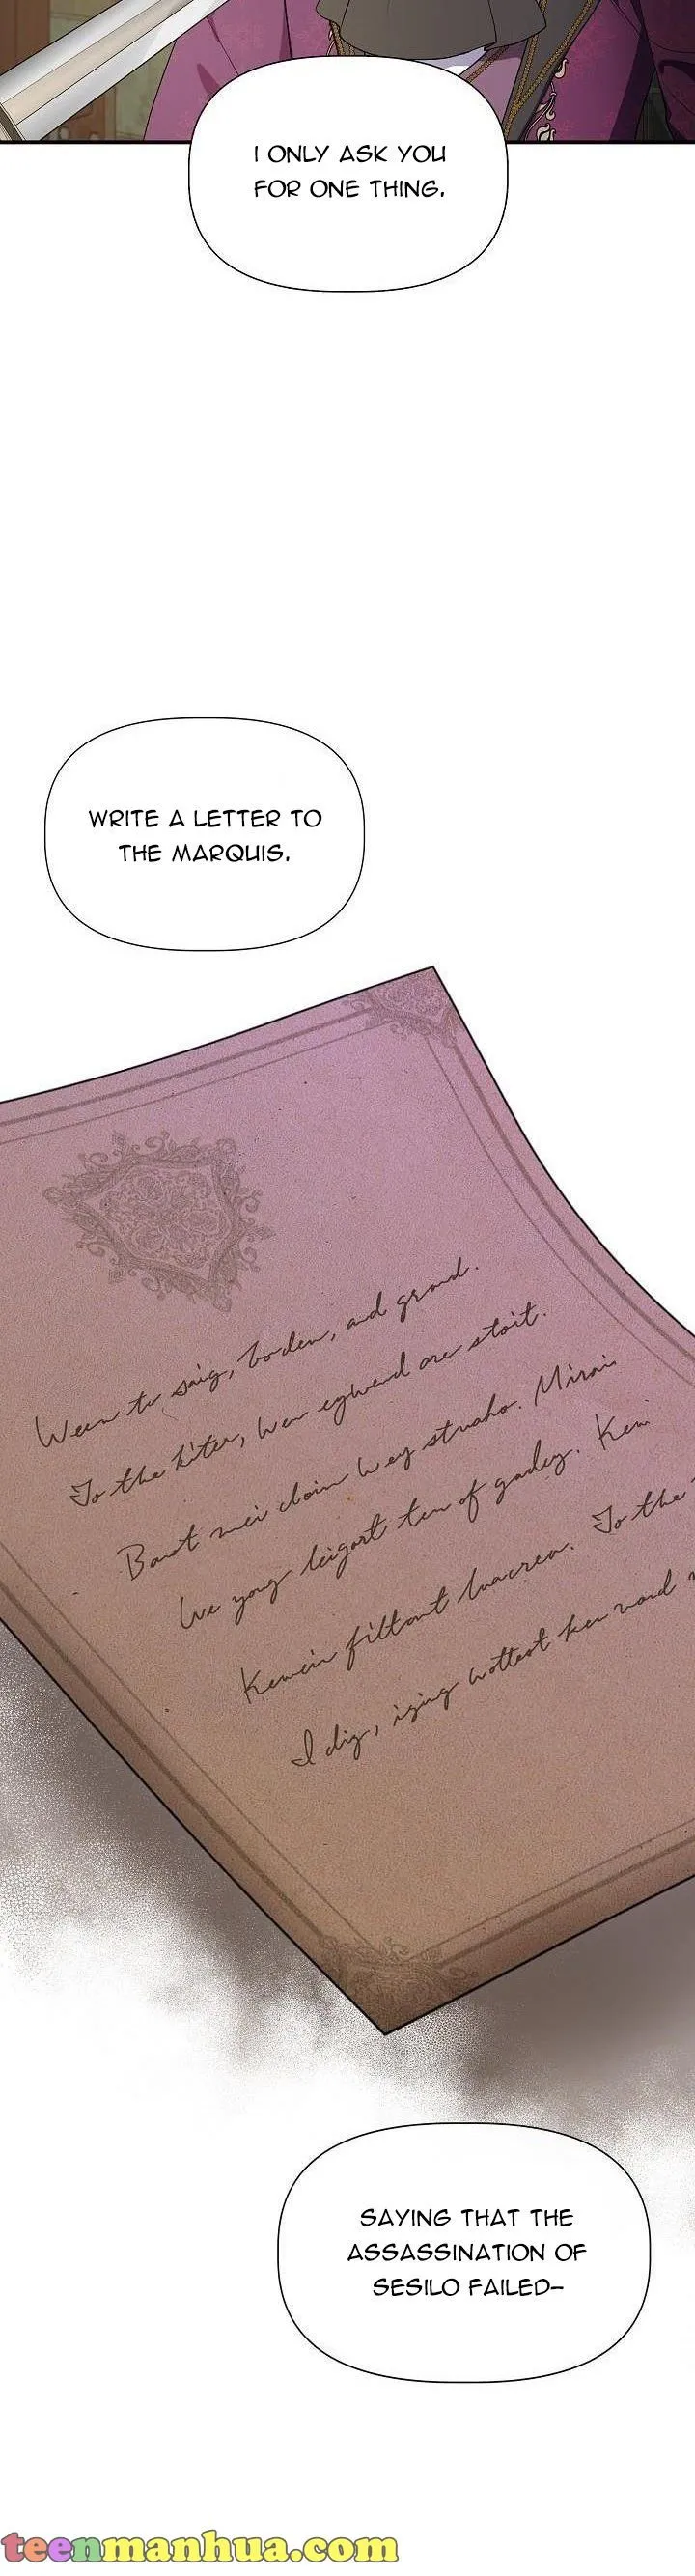 I ONLY ASK YOU
FOR ONE THING.
WRITE A LETTER TO
THE MARQUIS.
Ween to saig, boden, and grond.
To the kiter, wer eywend are stoit.
Baust mei cloin wey struaho. Mirai
We yong leigart ten of gadey. Ken
Kewein filtant luacrea. To the
I dig, izing wottest ken vand
SAYING THAT THE
ASSASSINATION OF
SESILO FAILED-
teenmanhua.com